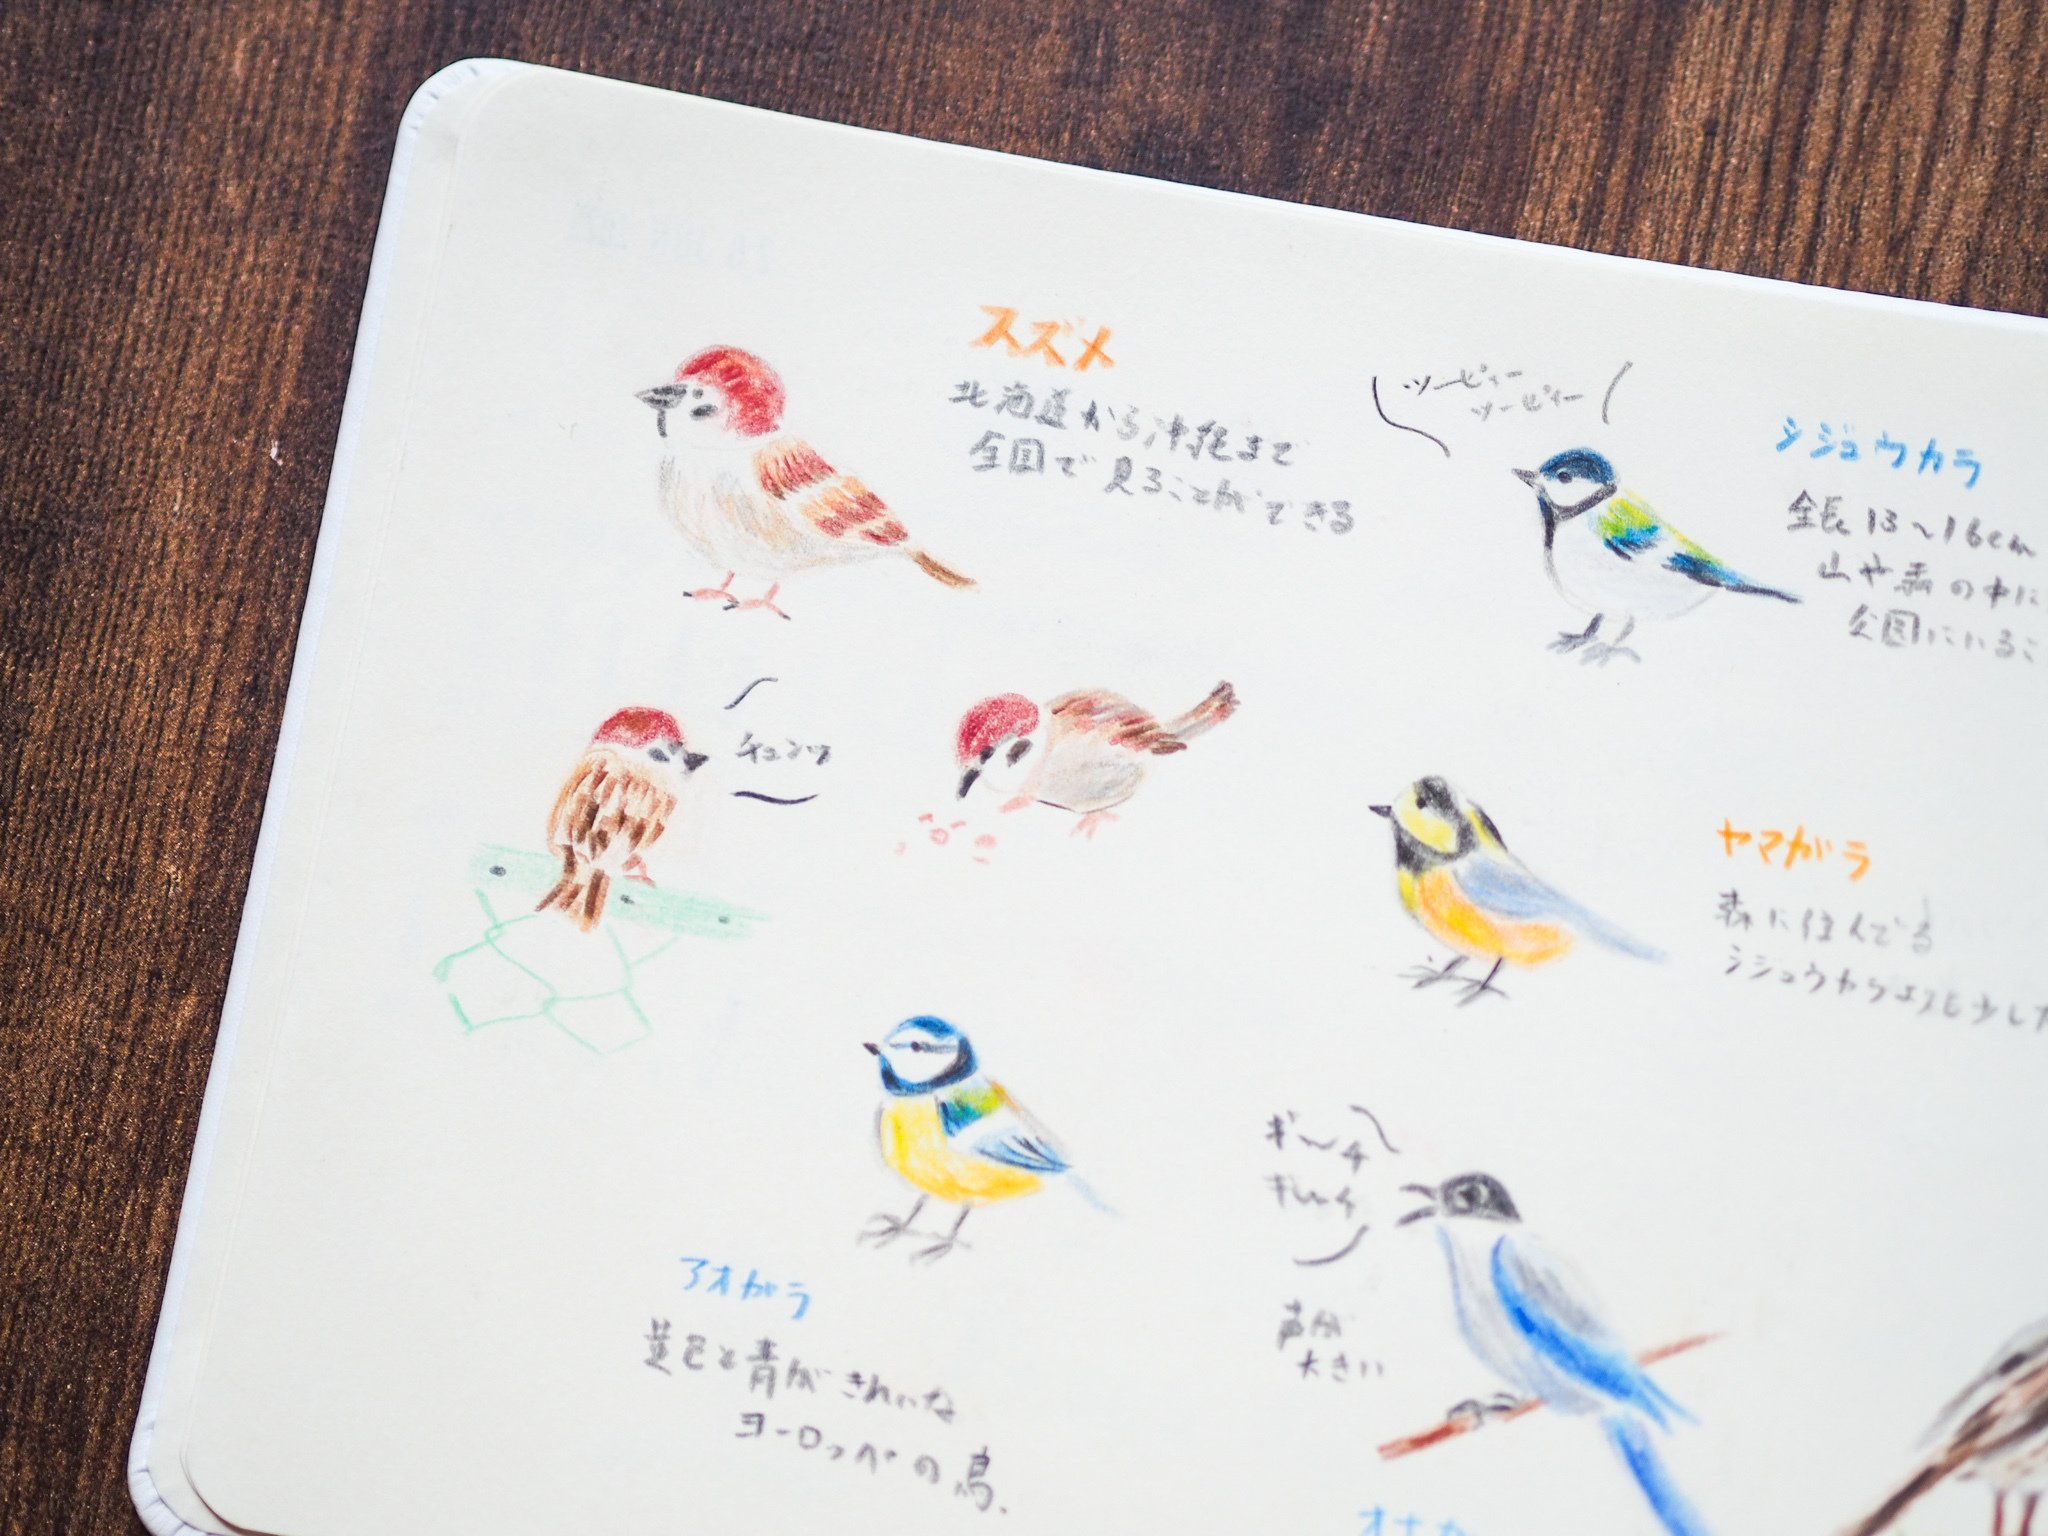 スズメ
北海道から沖縄まで
全国で見ることができる
チュンッ
ツーピィー
ツーピィー
シジュウカラ
全長13~16cm
山や森の中に
公園にいるこ
ヤマガラ
森に住んでる
シジュウカラよりも少し
アオガラ
黄色と青がきれいな
ヨーロッペの鳥.
ギーチ
ギーチ
声が
大きい
オナガ